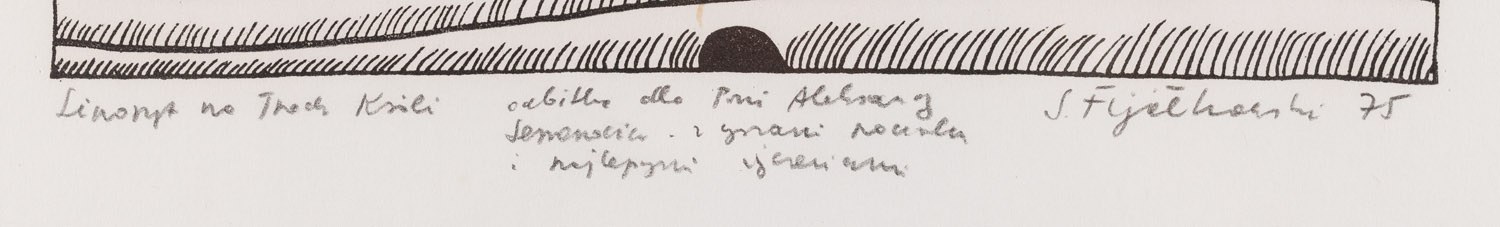 Linoryt na Trzech Króli
odbitka dla Pani Aleksandry
i najlepszymi życzeniami
S. Fijałkowski 75